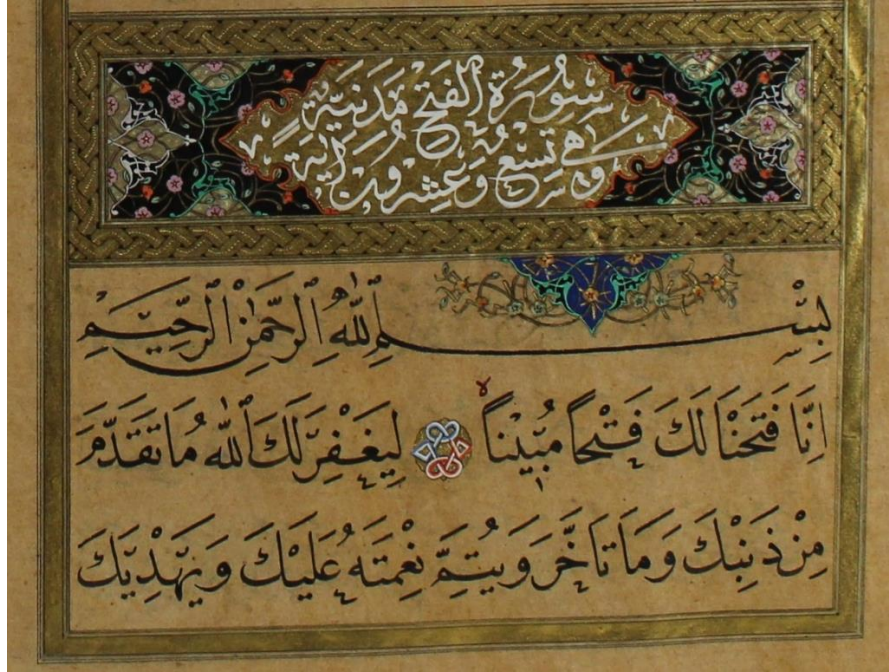 سُورَةُ الفَتْحِ مَدَنِيَّةٌ
وَهِيَ تِسْعٌ وَعِشْرُونَ اٰيَةً
بِسْمِ ٱللّٰهِ ٱلرَّحْمٰنِ ٱلرَّحِيمِ
اِنَّا فَتَحْنَا لَكَ فَتْحاً مُبِيْناً لا لِيَغْفِرَ لَكَ ٱللّٰهُ مَا تَقَدَّمَ
مِنْ ذَنْبِكَ وَمَا تَاَخَّرَ وَيُتِمَّ نِعْمَتَهُ عَلَيْكَ وَيَهْدِيَكَ